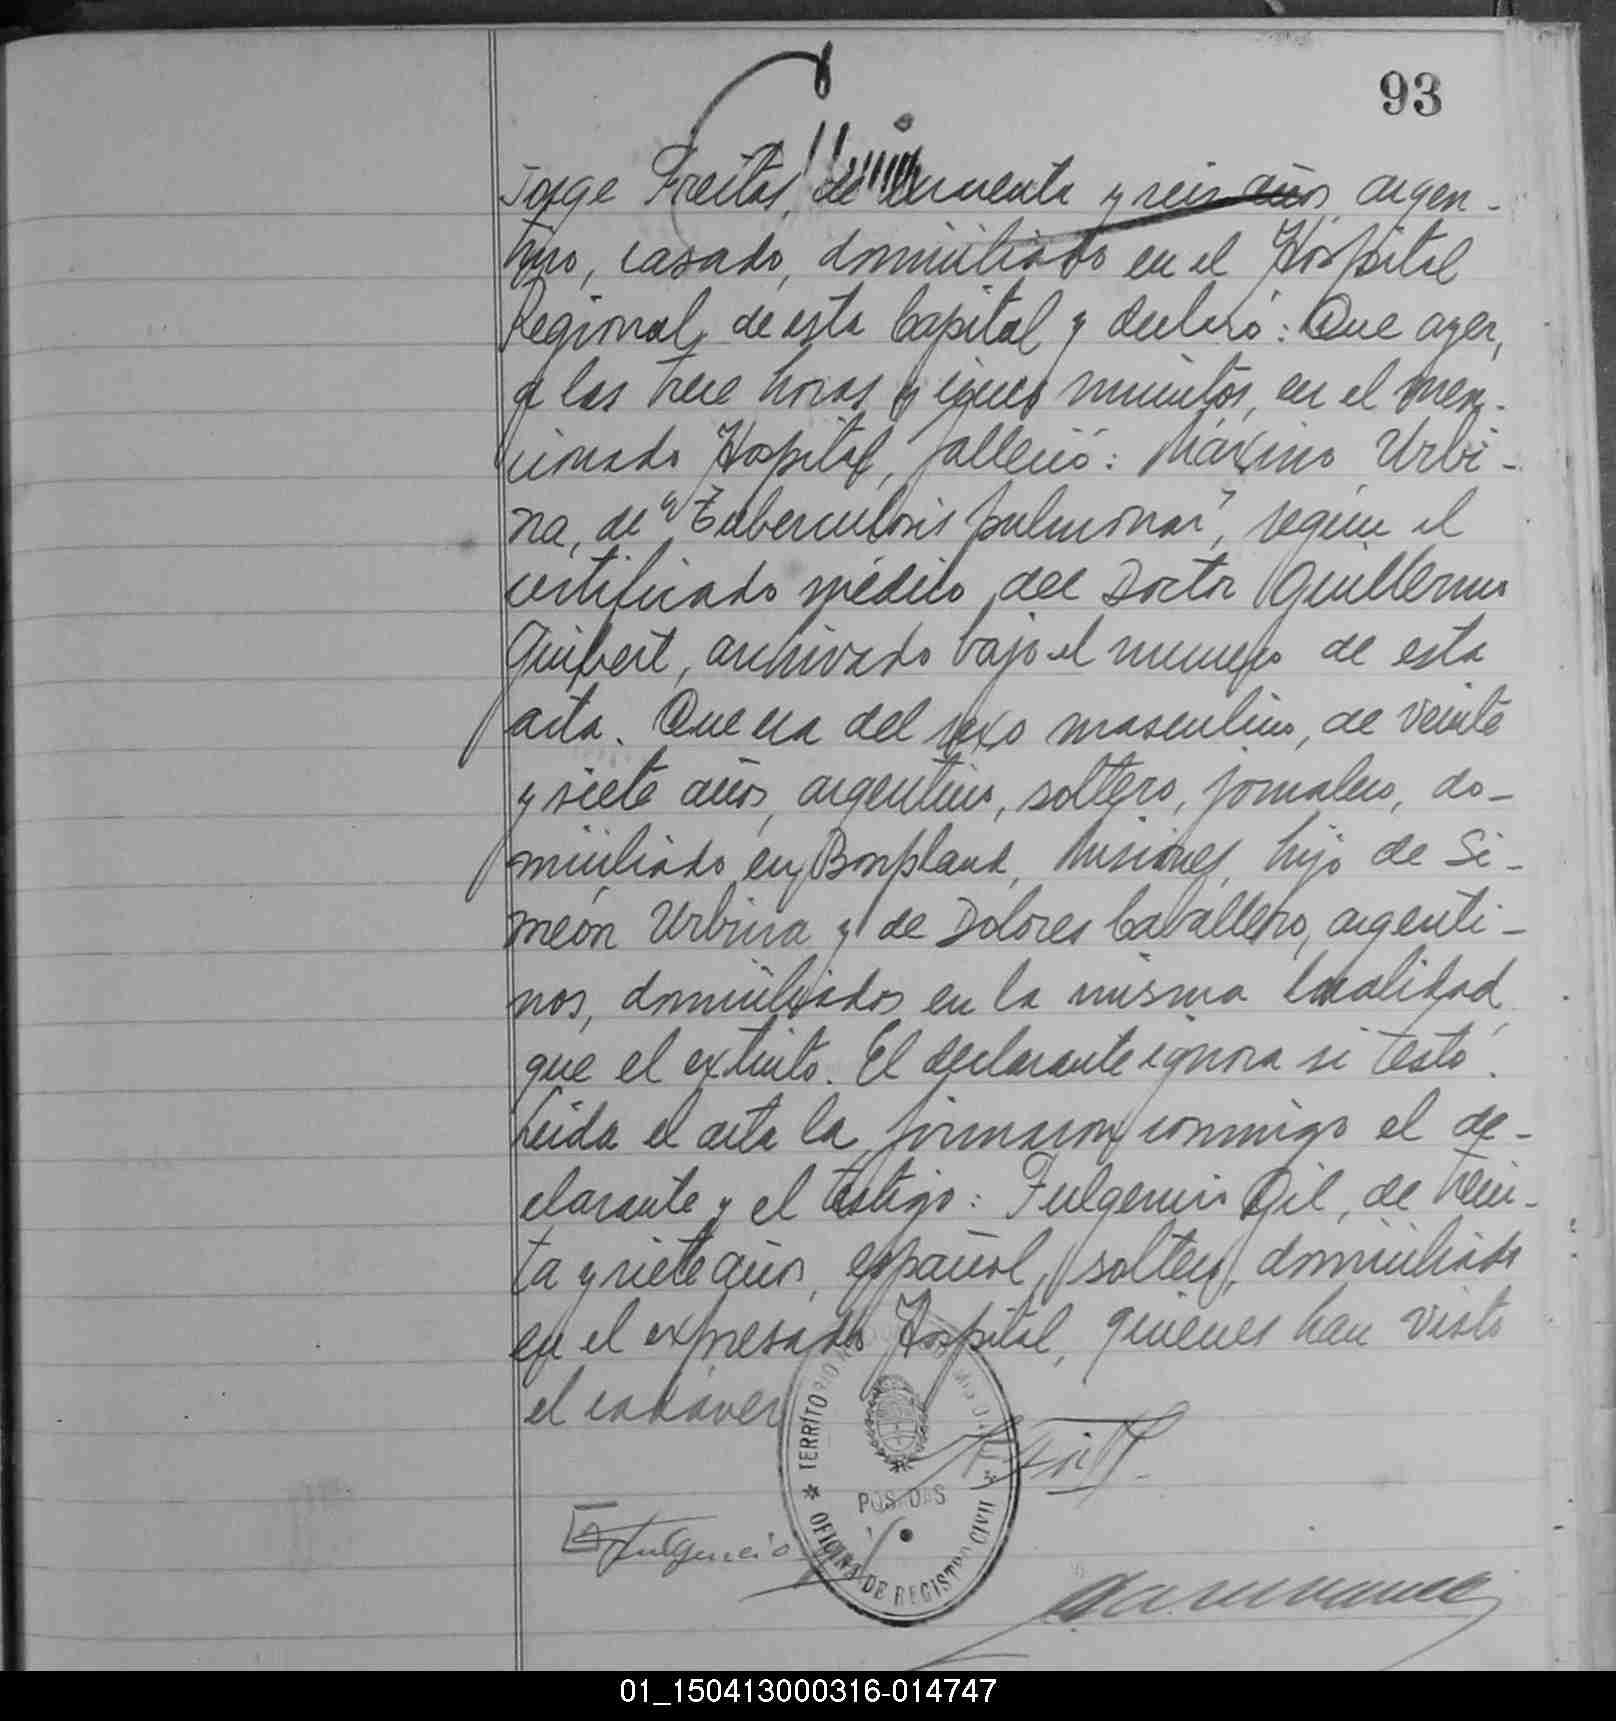 93
Jorge Freitas, de cincuenta y seis años, argen-
tino, casado, domiciliado en el Hospital
Regional de esta Capital y declaró: Que ayer,
a las trece horas y cinco minutos, en el men-
cionado Hospital, falleció: Máximo Urbi-
na, de "Tuberculosis pulmonar", según el
certificado médico del Doctor Guillermo
Guibert, archivado bajo el número de esta
acta. Que era del sexo masculino, de veinte
y siete años, argentino, soltero, jornalero, do-
miciliado en Bonpland, Misiones, hijo de Si-
meón Urbina y de Dolores Cavallero, argenti-
nos, domiciliados en la misma localidad
que el extinto. El declarante ignora si testó.
Leida el acta la firmaron conmigo el de-
clarante y el testigo: Fulgencio Gil, de trein-
ta y siete años, español, soltero, domiciliado
en el expresado Hospital, quienes han visto
el cadáver
TERRITORIO
POSADAS
OFICINA DE REGISTRO CIVIL
Fulgencio
01_150413000316-014747